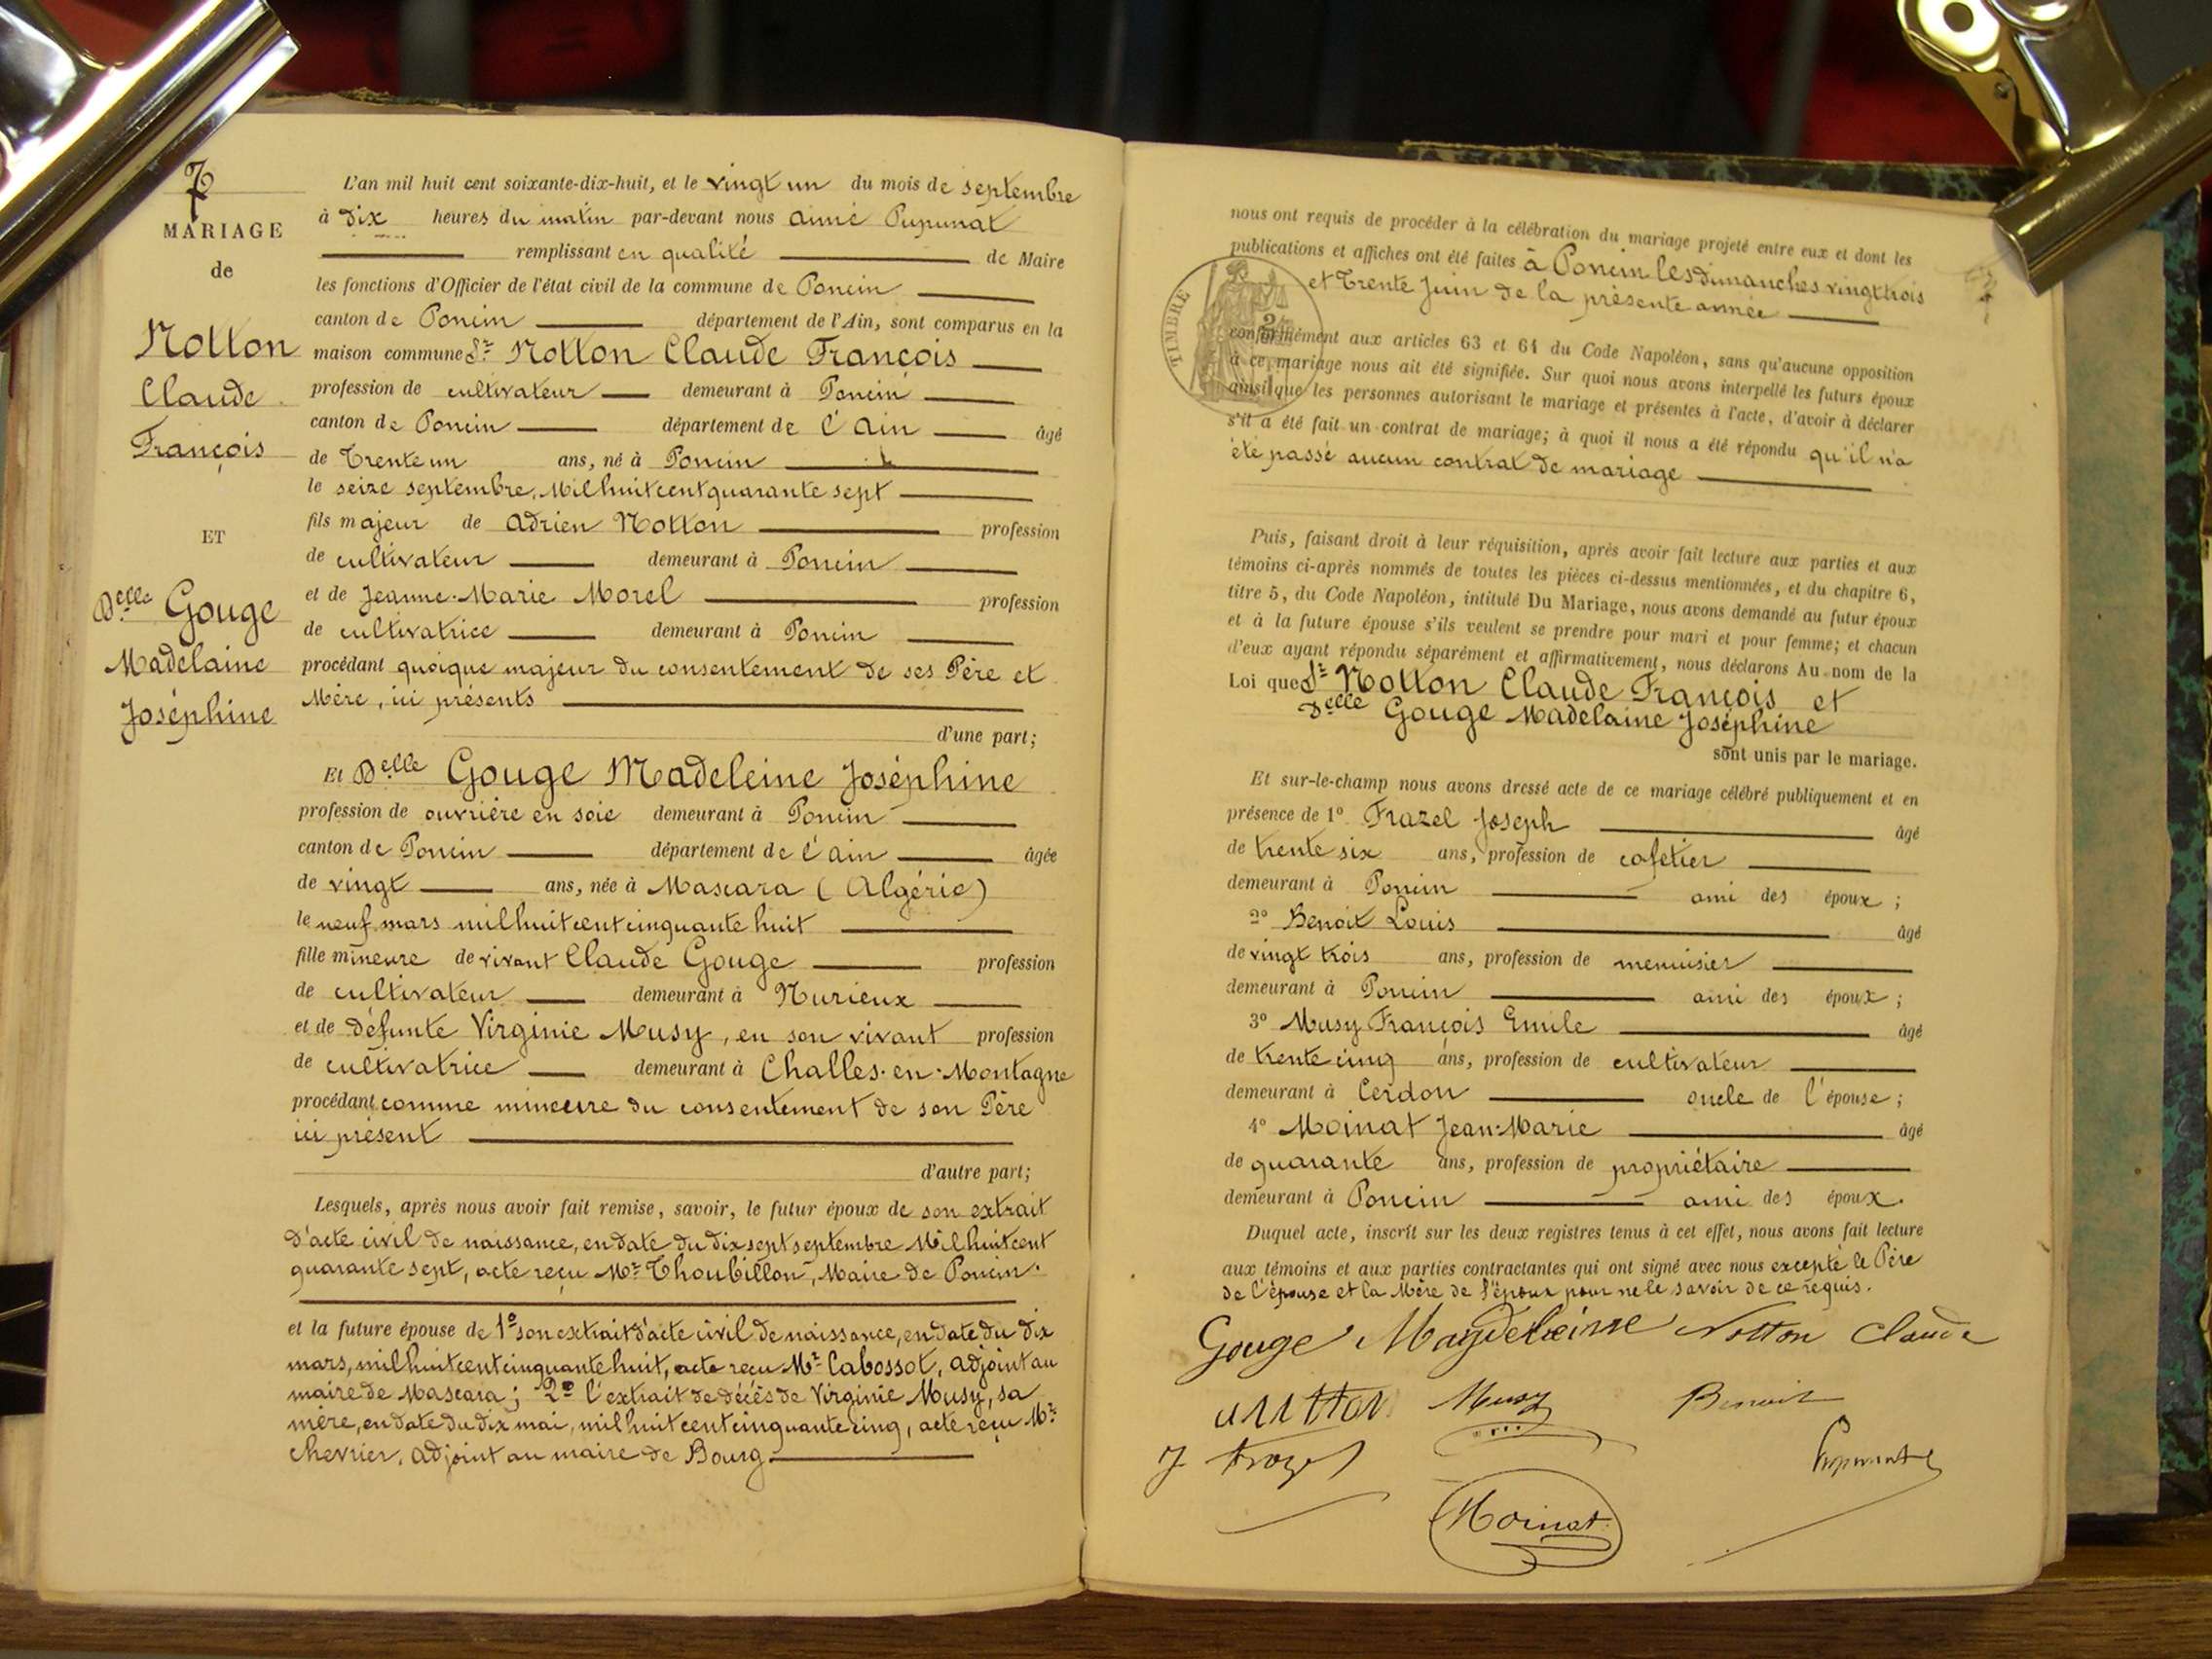 7
MARIAGE
de
Notton
Claude
François
ET
Delle Gouge
Madelaine
Joséphine
L'an mil huit cent soixante-dix-huit, et le vingt un du mois de septembre
à dix heures du matin par-devant nous aimé Pupunat
remplissant en qualité de Maire
les fonctions d'Officier de l'état civil de la commune de Poncin
canton de Poncin département de l'Ain, sont comparus en la
maison commune Sr Notton Claude François
profession de cultivateur demeurant à Poncin
canton de Poncin département de l'Ain âgé
de Trente un ans, né à Poncin
le seize septembre, Mil huit cent quarante sept
fils majeur de Adrien Notton profession
de cultivateur demeurant à Poncin
et de Jeanne-Marie Morel profession
de cultivatrice demeurant à Poncin
procédant quoique majeur du consentement de ses Père et
Mère, ici présents
d'une part;
Et Delle Gouge Madeleine Joséphine
profession de ouvrière en soie demeurant à Poncin
canton de Poncin département de l'ain âgée
de vingt ans, née à Mascara (Algérie)
le neuf mars mil huit cent cinquante huit
fille mineure de vivant Claude Gouge profession
de cultivateur demeurant à Nurieux
et de défunte Virginie Musy, en son vivant profession
de cultivatrice demeurant à Challes-en-Montagne
procédant comme mineure du consentement de son Père
ici présent
d'autre part;
Lesquels, après nous avoir fait remise, savoir, le futur époux de son extrait
d'acte civil de naissance, en date du dix sept septembre Mil huit cent
quarante sept, acte reçu Mr Thoubillon, Maire de Poncin.
et la future épouse de 1o son extrait d'acte civil de naissance, en date du dix
mars, mil huit cent cinquante huit, acte reçu Mr Cabossot, adjoint au
maire de Mascara; 2o l'extrait de décès de Virginie Musy, sa
mère, en date du dix mai, mil huit cent cinquante cinq, acte reçu Mr
Chevrier, adjoint au maire de Bourg.
nous ont requis de procéder à la célébration du mariage projeté entre eux et dont les
publications et affiches ont été faites à Poncin les dimanches vingt trois
et Trente Juin de la présente année
TIMBRE
conformément aux articles 63 et 64 du Code Napoléon, sans qu'aucune opposition
à ce mariage nous ait été signifiée. Sur quoi nous avons interpellé les futurs époux
ainsi que les personnes autorisant le mariage et présentes à l'acte, d'avoir à déclarer
s'il a été fait un contrat de mariage; à quoi il nous a été répondu qu'il n'a
été passé aucun contrat de mariage
Puis, faisant droit à leur réquisition, après avoir fait lecture aux parties et aux
témoins ci-après nommés de toutes les pièces ci-dessus mentionnées, et du chapitre 6,
titre 5, du Code Napoléon, intitulé Du Mariage, nous avons demandé au futur époux
et à la future épouse s'ils veulent se prendre pour mari et pour femme; et chacun
d'eux ayant répondu séparément et affirmativement, nous déclarons Au nom de la
Loi que Sr Notton Claude François et
Delle Gouge Madelaine Joséphine
sont unis par le mariage.
Et sur-le-champ nous avons dressé acte de ce mariage célébré publiquement et en
présence de 1o Frazel Joseph âgé
de trente six ans, profession de cafetier
demeurant à Poncin ami des époux;
2o Benoit Louis âgé
de vingt trois ans, profession de menuisier
demeurant à Poncin ami des époux;
3o Musy François Emile âgé
de trente cinq ans, profession de cultivateur
demeurant à Cerdon oncle de l'épouse;
4o Moinat Jean-Marie âgé
de quarante ans, profession de propriétaire
demeurant à Poncin ami des époux.
Duquel acte, inscrit sur les deux registres tenus à cet effet, nous avons fait lecture
aux témoins et aux parties contractantes qui ont signé avec nous excepté le Père
de l'épouse et la Mère de l'époux pour ne le savoir de ce requis.
Gouge Magdeleine Notton Claude
Musy Benoit
J
Moinat